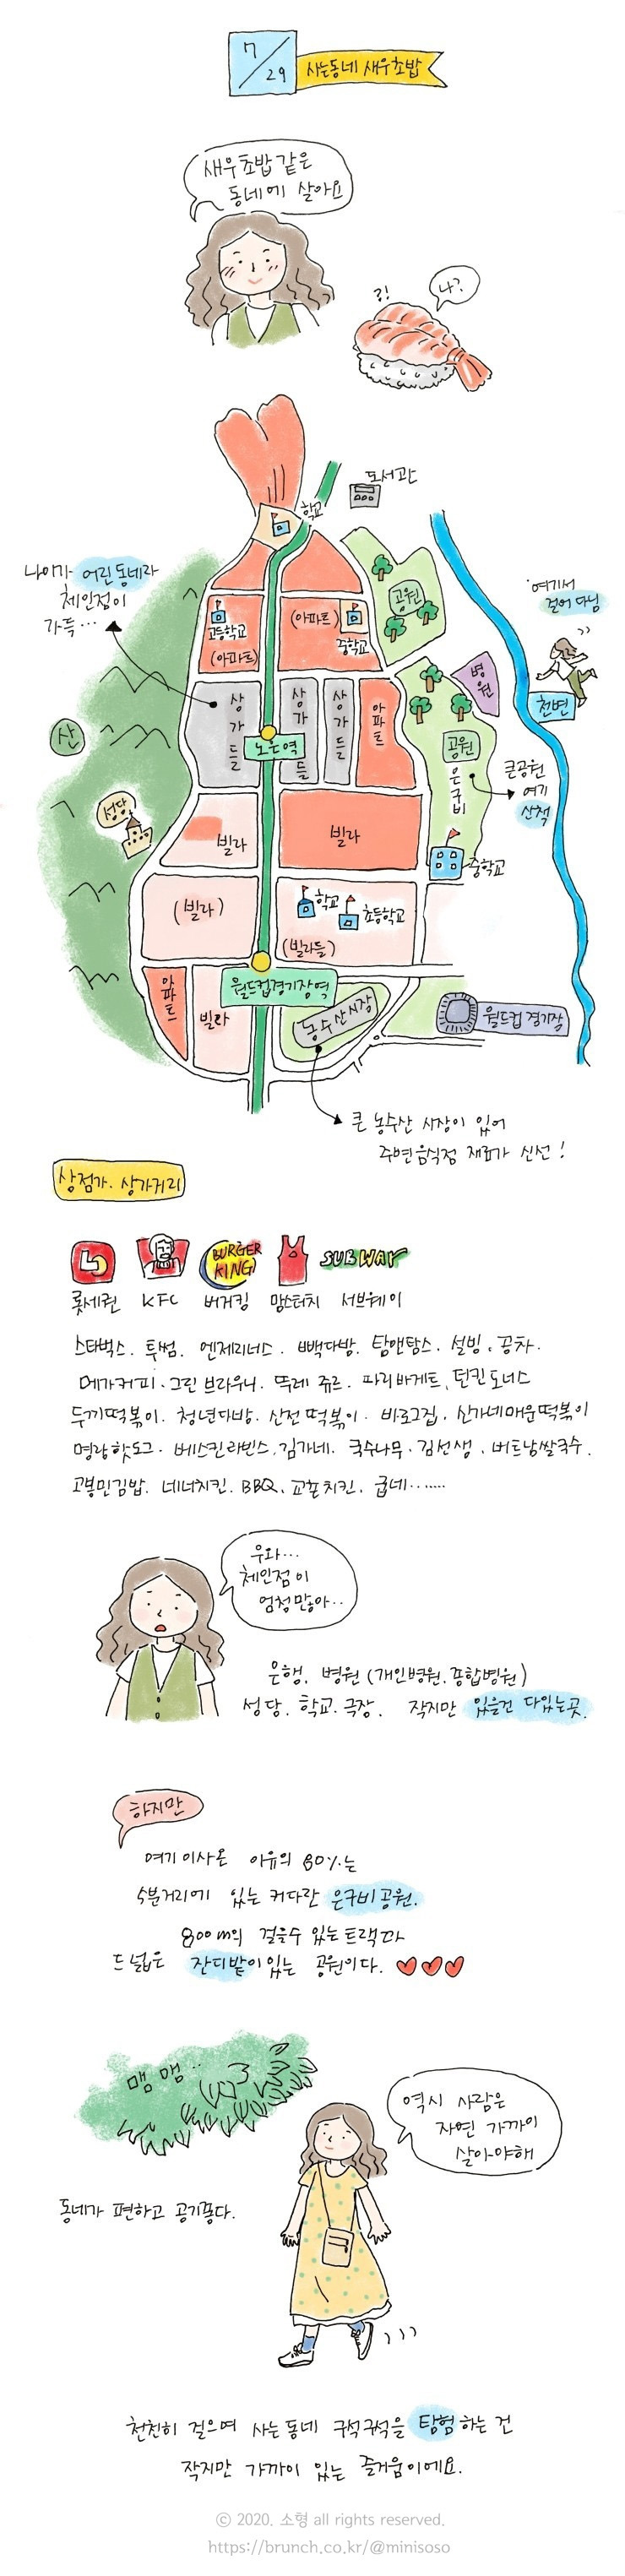 7/29
사는동네 새우초밥
새우초밥 같은
동네에 살아요
?!
나?
도서관
학교
나이가 어린 동네라
체인점이
가득...
고등학교
(아파트)
(아파트)
중학교
공원
여기서
걸어 다님
천변
병원
산
상가들
상가들
상가들
아파트
노은역
공원
은구비
큰공원
여기
산책
성당
빌라
빌라
중학교
(빌라)
학교
초등학교
(빌라들)
아파트
빌라
월드컵경기장역
농수산시장
월드컵 경기장
큰 농수산 시장이 있어
주변음식점 재료가 신선!
상점가. 상가거리
BURGER KING
SUBWAY
롯세권 KFC 버거킹 맘스터치 서브웨이
스타벅스. 투썸. 엔제리너스. 빽다방. 탐앤탐스. 설빙. 공차.
메가커피. 그린 브라우니. 뚜레 쥬르. 파리바게트. 던킨도너스
두끼떡볶이. 청년다방. 산전 떡볶이. 바로그집. 신가네매운떡볶이
명랑핫도그. 베스킨라빈스. 김가네. 국수나무. 김선생. 버드남쌀국수.
고봉민김밥. 네네치킨. BBQ. 교촌치킨. 굽네.......
우와...
체인점이
엄청많아..
은행. 병원(개인병원. 종합병원)
성당. 학교. 극장. 작지만 있을건 다있는곳.
하지만
여기 이사온 이유의 80%는
5분거리에 있는 커다란 은구비공원.
800m의 걸을수 있는 트랙과
드넓은 잔디밭이 있는 공원이다.
맴 맴..
역시 사람은
자연 가까이
살아야해
동네가 편하고 공기좋다.
천천히 걸으며 사는 동네 구석구석을 탐험하는 건
작지만 가까이 있는 즐거움이에요.
© 2020. 소형 all rights reserved.
https://brunch.co.kr/@minisoso